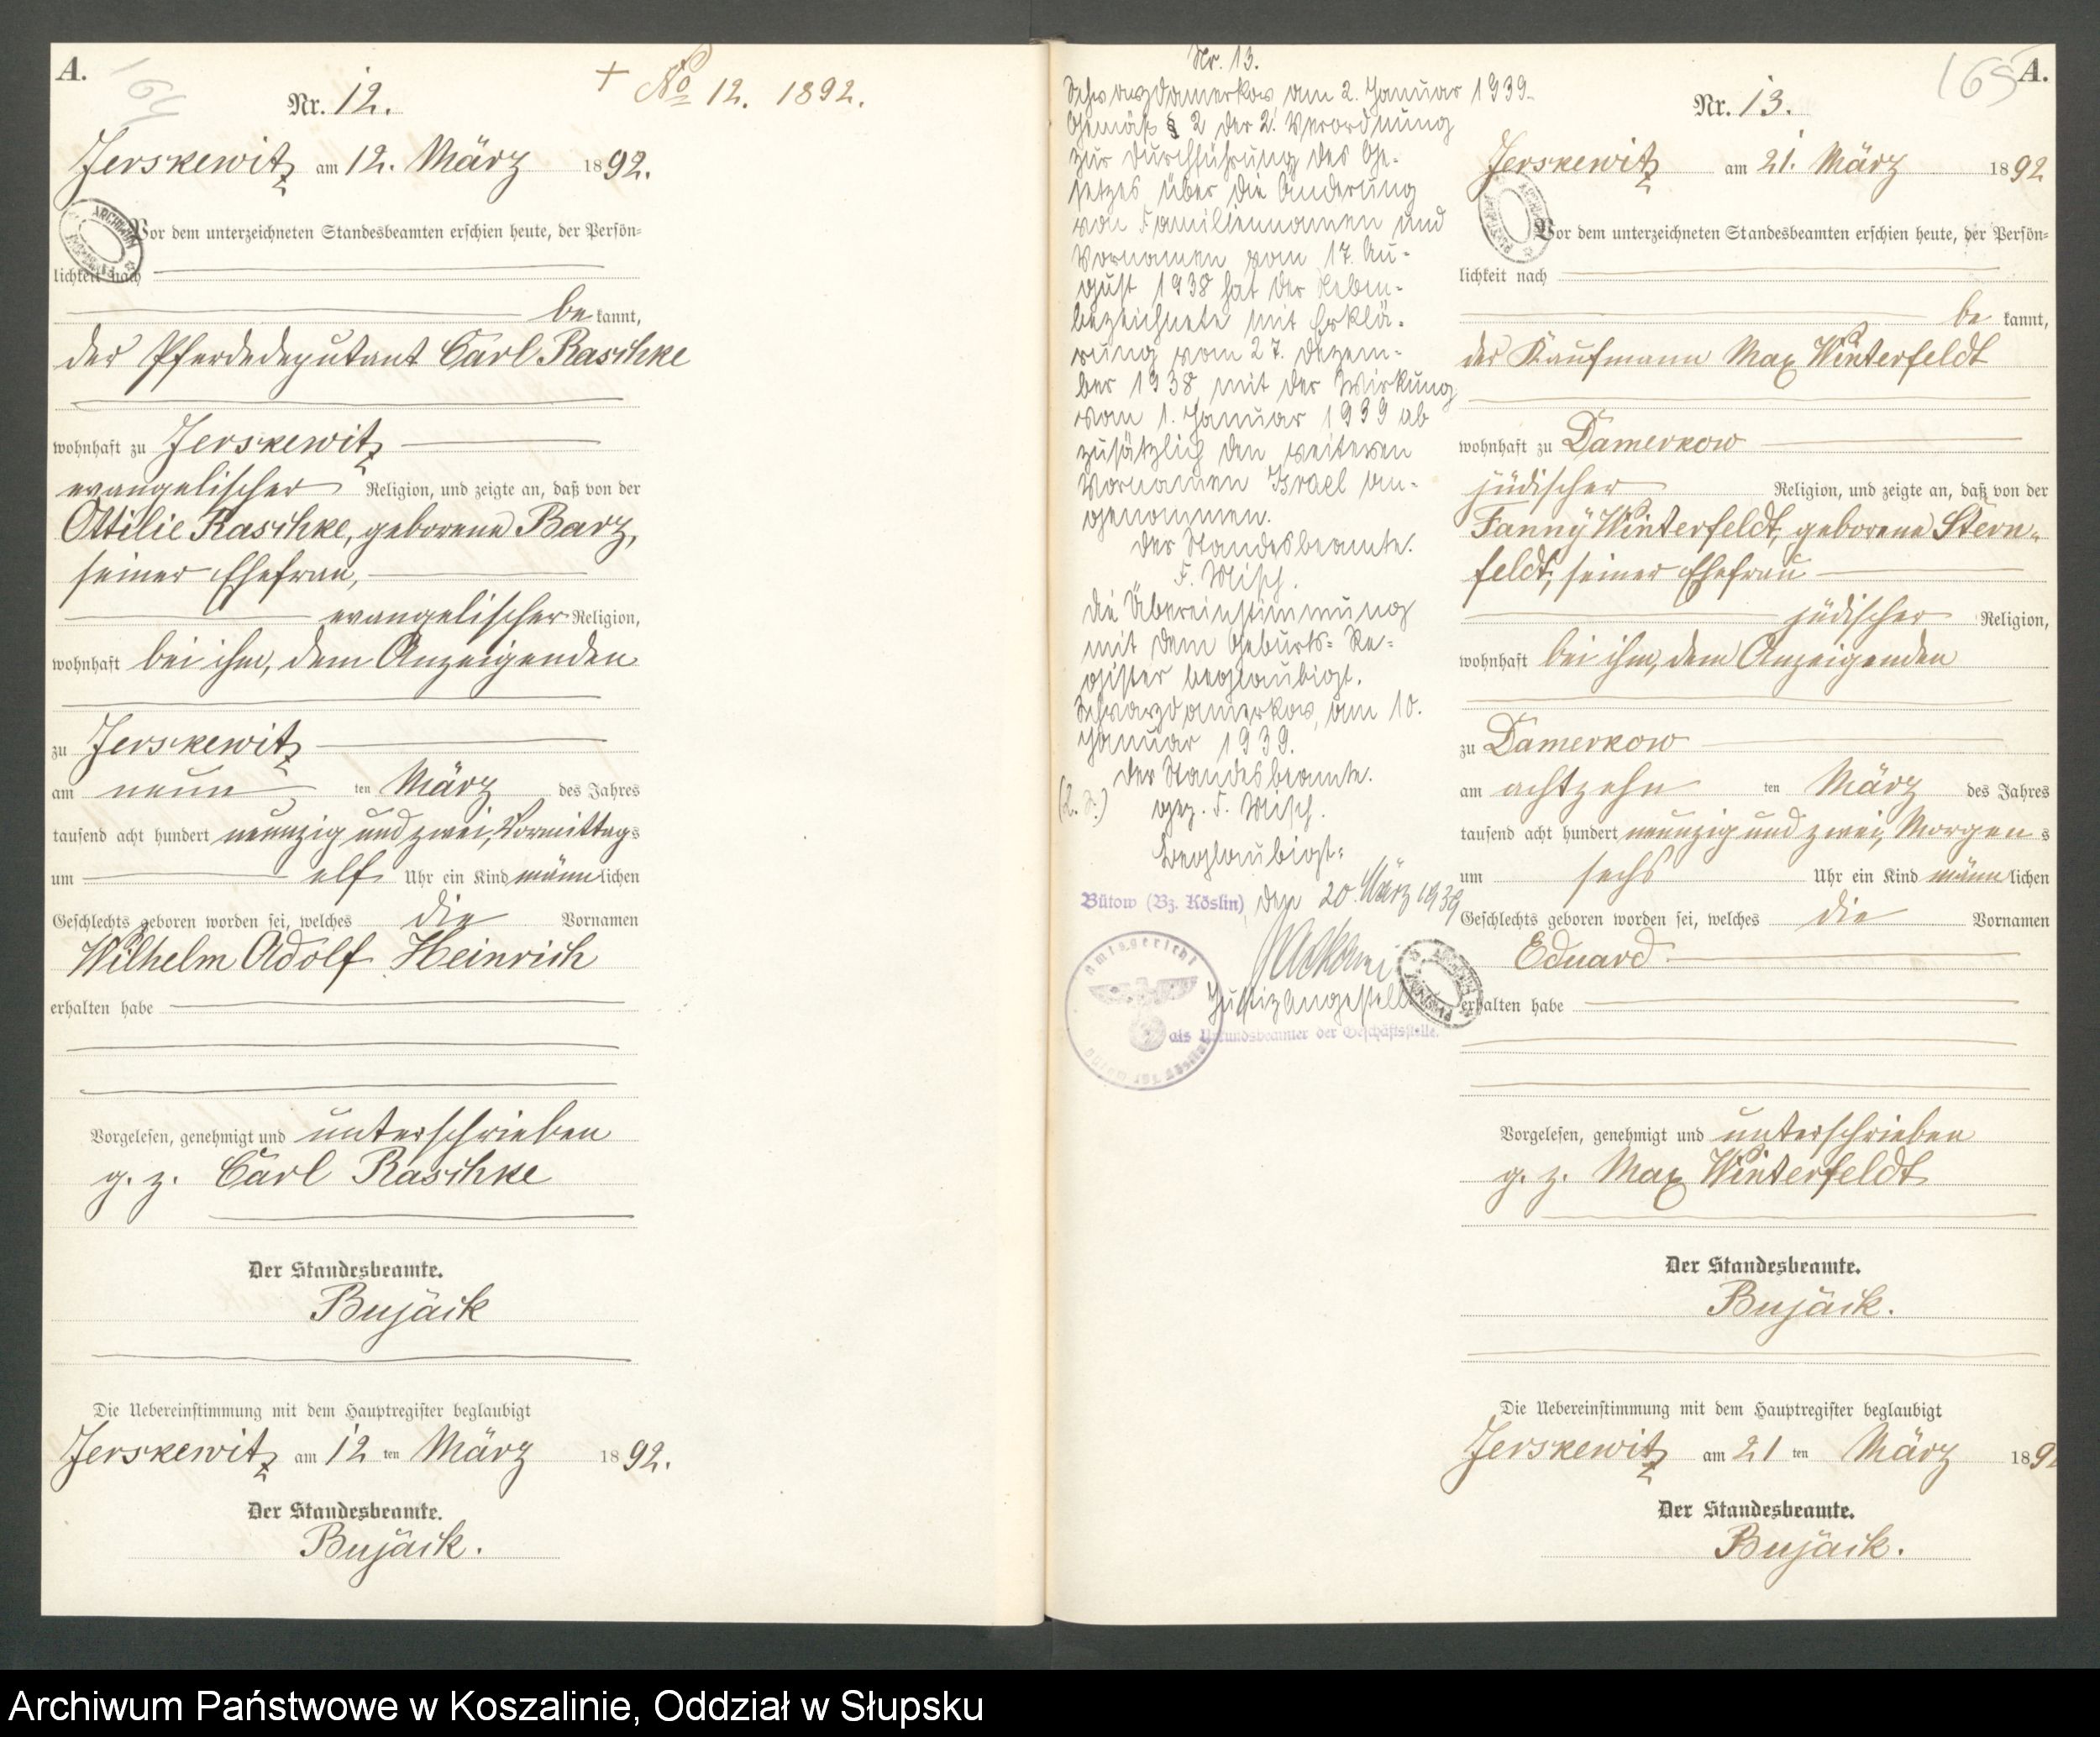 A.
164
+ No 12. 1892.
Nr. 12.
Jerskewitz am 12. März 1892.
Vor dem unterzeichneten Standesbeamten erschien heute, der Persön=
lichkeit nach
be kannt,
der Pferdedeputant Carl Raschke
wohnhaft zu Jerskewitz
evangelischer Religion, und zeigte an, daß von der
Ottilie Raschke, geborene Barz,
seiner Ehefrau,
evangelischer Religion,
wohnhaft bei ihm, dem Anzeigenden
zu Jerskewitz
am neun ten März des Jahres
tausend acht hundert neunzig und zwei, Vormittags
um elf Uhr ein Kind männlichen
Geschlechts geboren worden sei, welches die Vornamen
Wilhelm Adolf Heinrich
erhalten habe
Vorgelesen, genehmigt und unterschrieben
g. z. Carl Raschke
Der Standesbeamte.
Bujäck
Die Uebereinstimmung mit dem Hauptregister beglaubigt
Jerskewitz am 12 ten März 1892.
Der Standesbeamte.
Bujäck.
Nr. 13.
Schwarzdamerkow am 2. Januar 1939.
Gemäß § 2 der 2. Verordnung
zur Durchführung des Ge-
setzes über die Änderung
von Familiennamen und
Vornamen vom 17. Au-
gust 1938 hat der Neben-
bezeichnete mit Erklä-
rung vom 27. Dezem-
ber 1938 mit der Wirkung
vom 1. Januar 1939 ab
zusätzlich den weiteren
Vornamen Israel an-
genommen.
Der Standesbeamte.
F. Misch.
Die Übereinstimmung
mit dem Geburts-Re-
gister beglaubigt.
Schwarzdamerkow, am 10.
Januar 1939.
Der Standesbeamte.
(L. S.) gez. F. Misch.
Beglaubigt:
Bütow (Bz. Köslin), den 20. März 1939
Amtsgericht
Justizangestellter
als Urkundsbeamter der Geschäftsstelle.
165
A.
Nr. 13.
Jerskewitz am 21. März 1892
Vor dem unterzeichneten Standesbeamten erschien heute, der Persön=
lichkeit nach
be kannt,
der Kaufmann Max Winterfeldt
wohnhaft zu Damerkow
jüdischer Religion, und zeigte an, daß von der
Fanny Winterfeldt, geborene Stern-
feldt, seiner Ehefrau
jüdischer Religion,
wohnhaft bei ihm, dem Anzeigenden
zu Damerkow
am achtzehn ten März des Jahres
tausend acht hundert neunzig und zwei, Morgen s
um sechs Uhr ein Kind männlichen
Geschlechts geboren worden sei, welches die Vornamen
Eduard
erhalten habe
Vorgelesen, genehmigt und unterschrieben
g. z. Max Winterfeldt
Der Standesbeamte.
Bujäck.
Die Uebereinstimmung mit dem Hauptregister beglaubigt
Jerskewitz am 21 ten März 189
Der Standesbeamte.
Bujäck.
Archiwum Państwowe w Koszalinie, Oddział w Słupsku